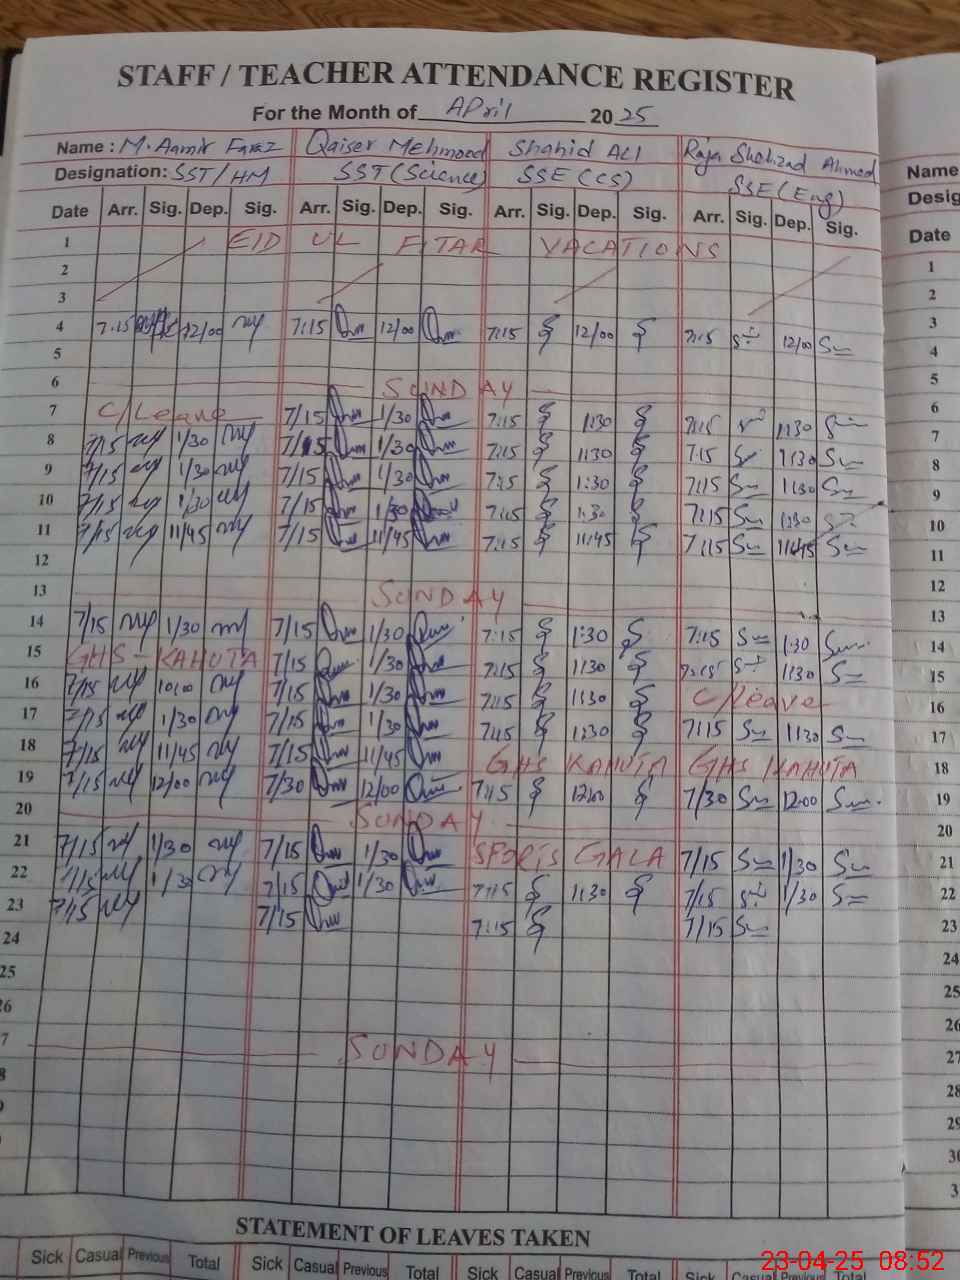 STAFF / TEACHER ATTENDANCE REGISTER
For the Month of April 2025
Name : M. Aamir Faraz Qaiser Mehmood Shahid ALI Raja Shahzad Ahmed Name
Designation: SST/HM SST (Science) SSE (CS) SSE (Eng) Desig
Date Arr. Sig. Dep. Sig. Arr. Sig. Dep. Sig. Arr. Sig. Dep. Sig. Arr. Sig. Dep. Sig. Date
1 EID UL FITAR VACATIONS 1
2 2
3 3
4 7:15 12/00 7:15 12/00 7:15 12/00 7:15 12/00 4
5 5
6 SUNDAY 6
7 C/Leave 7/15 1/30 7:15 1:30 7:15 1:30 7
8 7/15 1/30 7/15 1/30 7:15 1:30 7:15 1:30 8
9 7/15 1/30 7/15 1/30 7:15 1:30 7:15 1:30 9
10 7/15 1/30 7/15 1/30 7:15 1:30 7:15 1:30 10
11 7/15 11/45 7/15 11/45 7:15 11:45 7:15 11:45 11
12 12
13 SUNDAY 13
14 7/15 1/30 7/15 1/30 7:15 1:30 7:15 1:30 14
15 GHS - KAHUTA 7/15 1/30 7:15 1:30 7:15 1:30 15
16 7/15 10/00 7/15 1/30 7:15 1:30 C/Leave 16
17 7/15 1/30 7/15 1/30 7:15 1:30 7:15 1:30 17
18 7/15 11/45 7/15 11/45 GHS KAHUTA GHS KAHUTA 18
19 7/15 12/00 7/30 12/00 7:15 12:00 7/30 12:00 19
20 SUNDAY 20
21 7/15 1/30 7/15 1/30 SPORTS GALA 7/15 1/30 21
22 7/15 1/30 7/15 1/30 7:15 1:30 7/15 1/30 22
23 7/15 7/15 7:15 7/15 23
24 24
25 25
26 26
7 SUNDAY 27
8 28
29
30
3
STATEMENT OF LEAVES TAKEN
Sick Casual Previous Total Sick Casual Previous Total Sick Casual Previous Total Sick Casual Previous Total
23-04-25 08:52